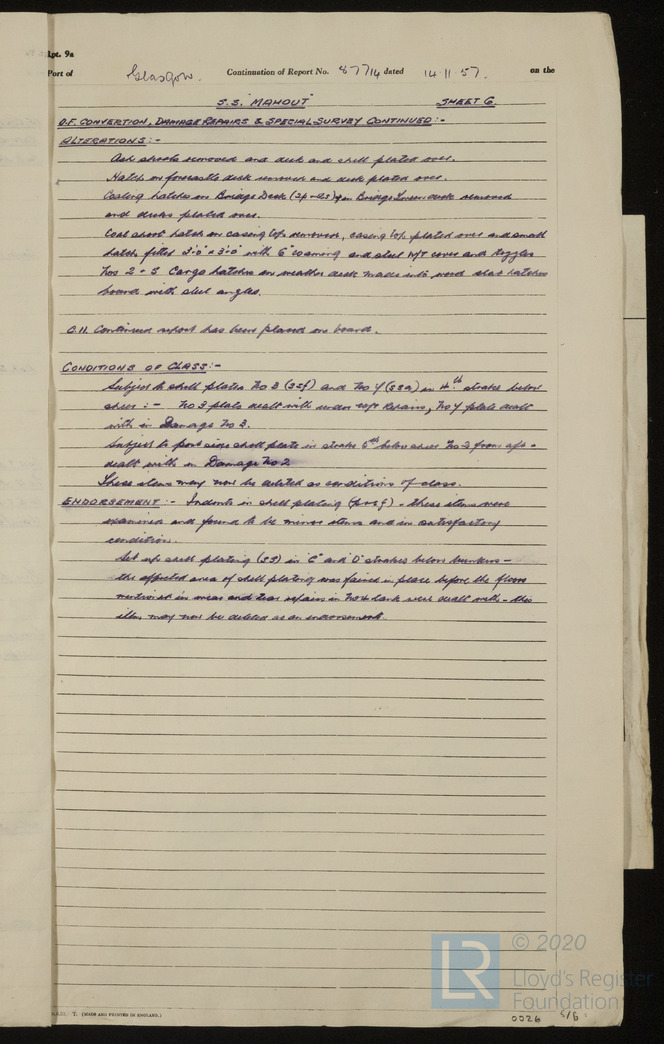 Rpt. 9a
Port of Glasgow. Continuation of Report No. 87714 dated 14 11 57. on the
S.S. "MAHOUT" SHEET 6.
O.F. CONVERTION, DAMAGE REPAIRS & SPECIAL SURVEY CONTINUED:-
ALTERATIONS:-
Ash shoots removed and deck and shell plated over.
Hatch on forecastle deck removed and deck plated over.
Casing hatches on Bridge Deck (2p + 2s) & in Bridge Tween deck removed
and decks plated over.
Coal shoot hatch on casing top removed, casing top plated over and small
hatch fitted 3'-0" x 3'-0" with 6" coaming and steel W/T cover and toggles
Nos 2 + 3 Cargo hatches on weather deck made into wood slab hatches
bound with steel angles.
O.11. Continued report has been placed on board.
CONDITIONS OF CLASS:-
Subject to shell plates No 3 (ssf) and No Y (ssa) in 4th strakes below
sheer:- No 3 plate dealt with under Repairs, No Y plate dealt
with in Damage No 3.
Subject to port side shell plate in strake 5th below sheer No 2 from aft -
dealt with in Damage No 2
These items may now be deleted as conditions of class.
ENDORSEMENT:- Indents in shell plating (p+s f) - these items were
examined and found to be minor items and in satisfactory
condition.
Set up shell plating (ss) in "C" and "D" strakes below bunkers -
the affected area of shell plating was faired in place before the floors
mentioned in wear and tear repairs in No 4 tank were dealt with - this
item may now be deleted as an endorsement.
T. (MADE AND PRINTED IN ENGLAND.)
LR
© 2020
Lloyd's Register
Foundation
0026 5/6